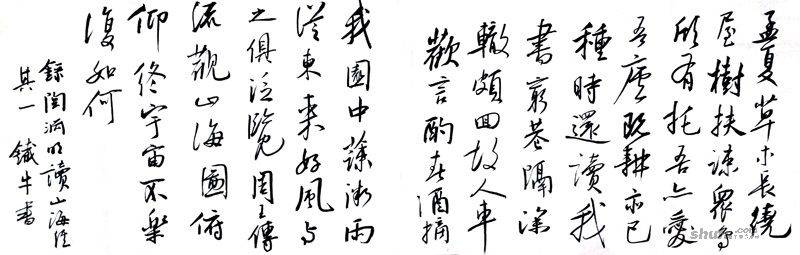 孟夏草木長繞
屋樹扶疎眾鳥
欣有托吾亦愛
吾廬既耕亦已
種時還讀我
書窮巷隔深
轍頗回故人車
歡言酌春酒摘
我園中蔬微雨
從東來好風与
之俱泛覽周王傳
流觀山海圖俯
仰終宇宙不樂
復如何
錄陶渊明讀山海經
其一 鐵牛書